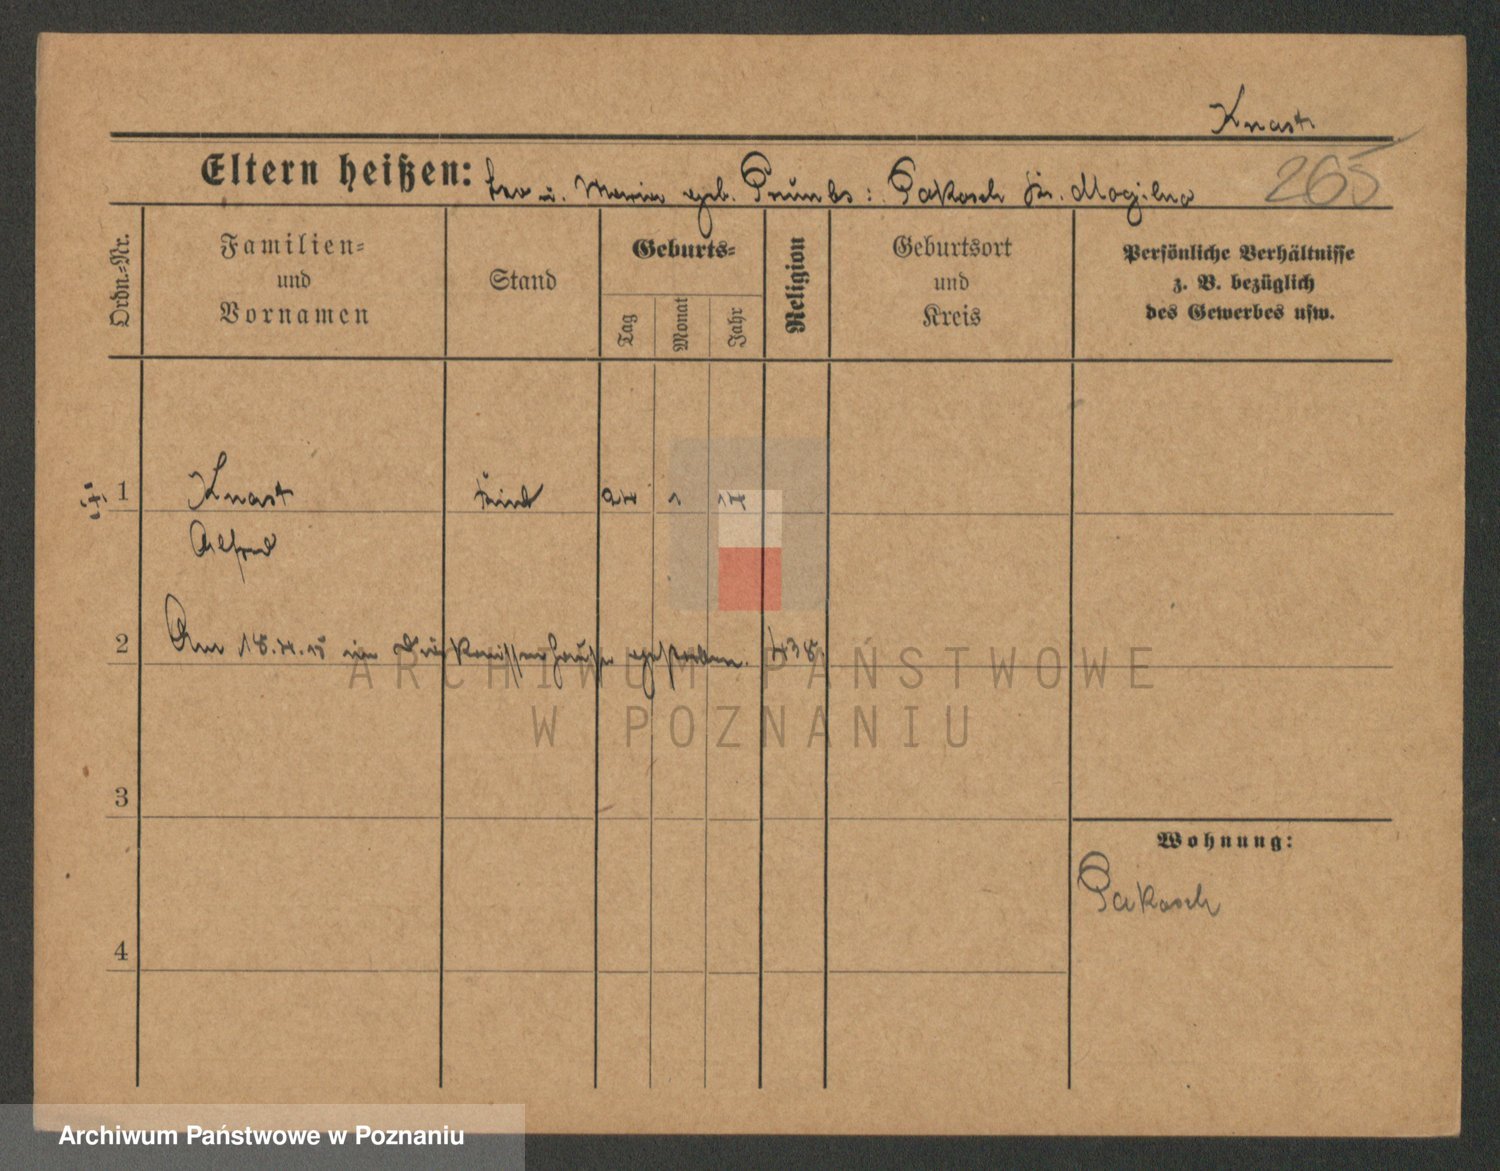 Knast
Eltern heißen: Leo u. Maria geb. Prümbs: Pakosch Kr. Mogilno 265
Ordn.-Nr.
Familien-
und
Vornamen
Stand
Geburts-
Tag
Monat
Jahr
Religion
Geburtsort
und
Kreis
Persönliche Verhältnisse
z. B. bezüglich
des Gewerbes usw.
1 Knast Kind 24 1 14
Alfred
2 Am 18.4.15 im Diakonissenhause gestorben. 438
ARCHIWUM PAŃSTWOWE
W POZNANIU
3
Wohnung:
Pakosch
4
Archiwum Państwowe w Poznaniu